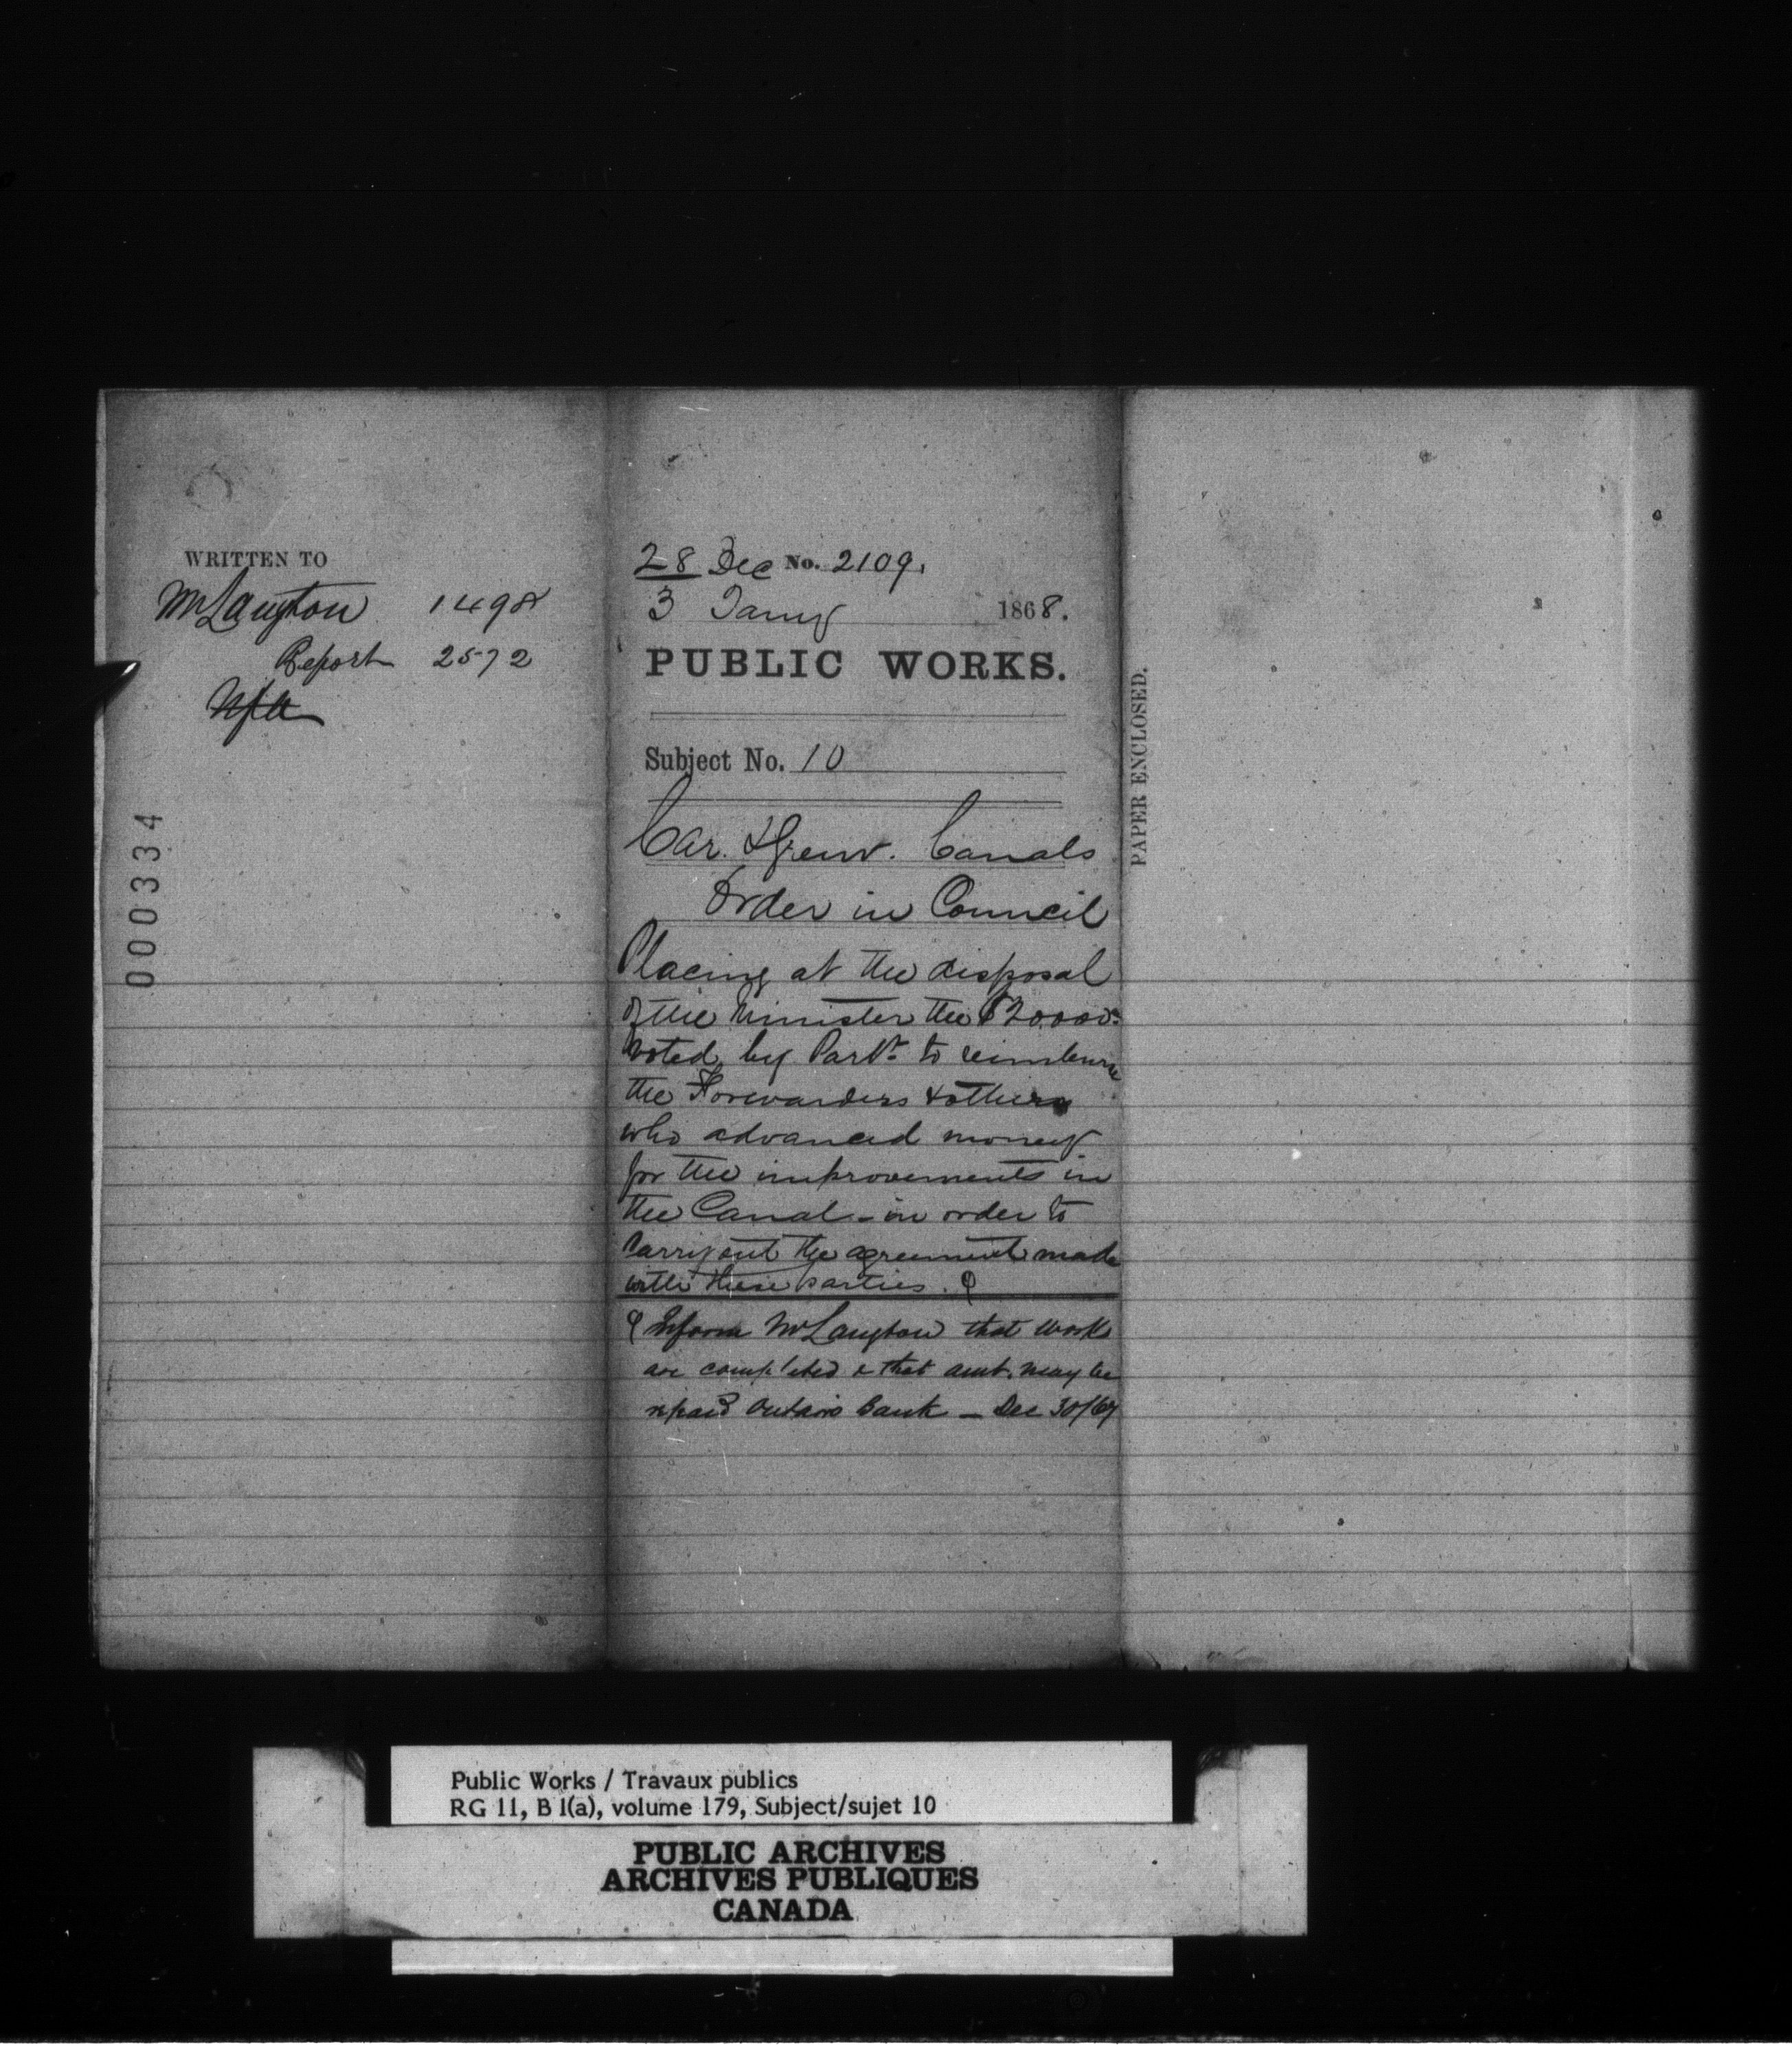 WRITTEN TO
Mr Langton 1498
Report 2572
000334
28 Dec No. 2109.
3 Jany 1868.
PUBLIC WORKS.
Subject No. 10
Car. & Grenv. Canals
Order in Council
Placing at the disposal
of the Minister the $20000
voted by Parlt. to reimburse
the Forwarders & others
who advanced money
for the improvements in
the Canal - in order to
carry out the agreement made
with these parties.
Inform Mr Langton that works
are completed & that amt. may be
repaid Ontario Bank - Dec 30/67
PAPER ENCLOSED.
Public Works / Travaux publics
RG 11, B 1(a), volume 179, Subject/sujet 10
PUBLIC ARCHIVES
ARCHIVES PUBLIQUES
CANADA